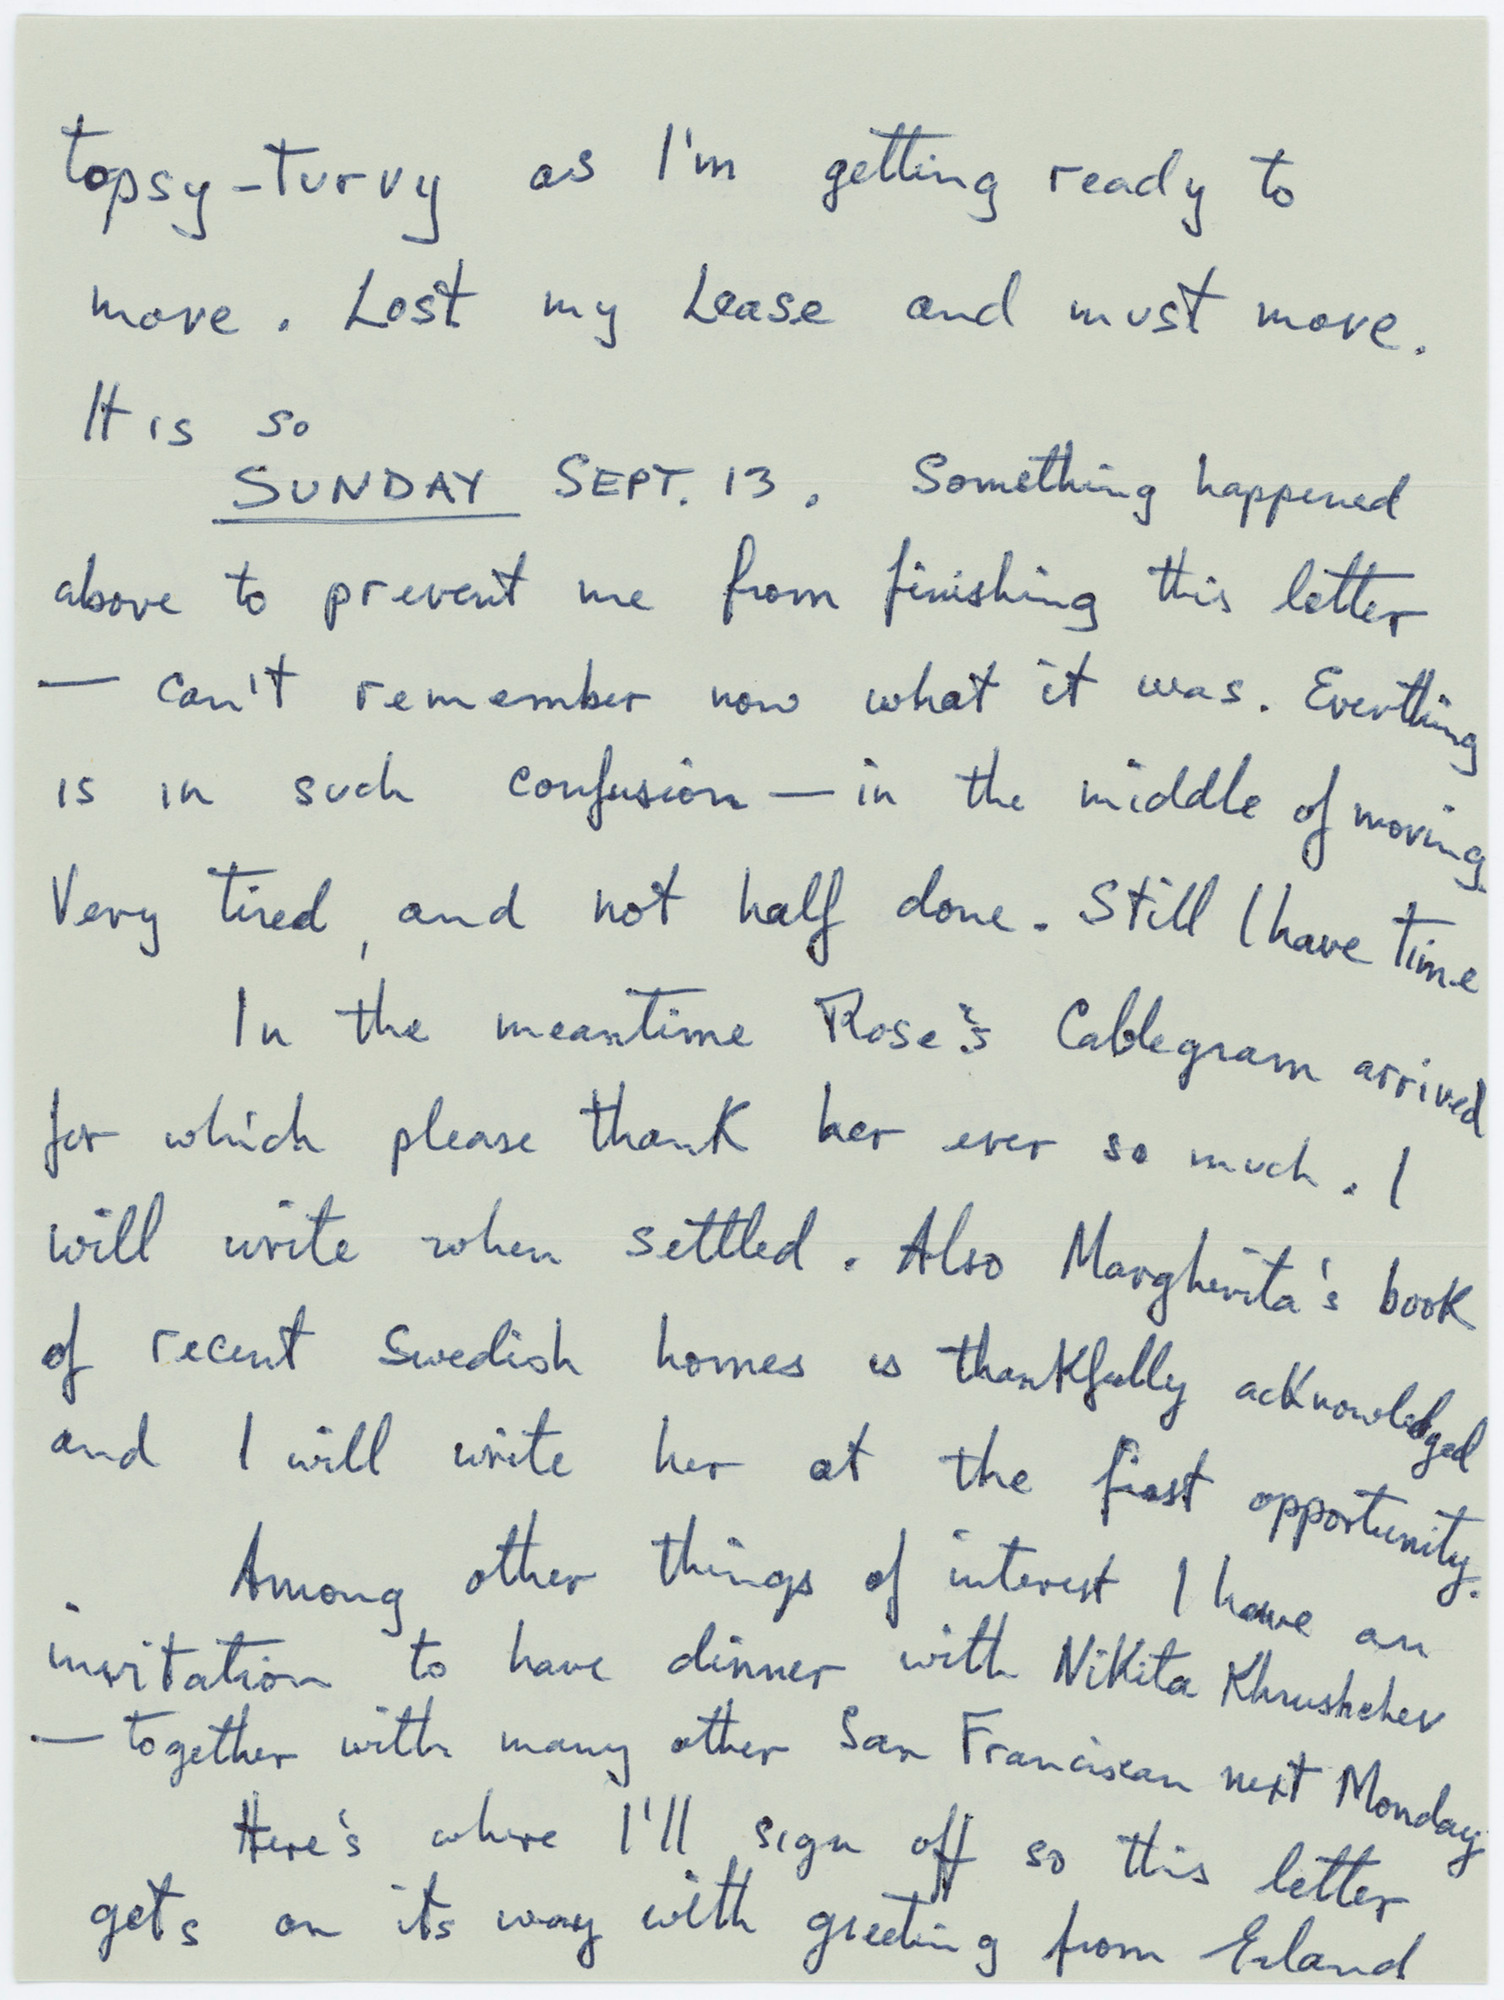 topsy-turvy as I'm getting ready to
move. Lost my Lease and must move.
It is so
SUNDAY SEPT. 13. Something happened
above to prevent me from finishing this letter
— can't remember now what it was. Everthing
is in such confusion — in the middle of moving
Very tired, and not half done. Still I have time
In the meantime Rose's Cablegram arrived
for which please thank her ever so much. I
will write when settled. Also Margherita's book
of recent Swedish homes is thankfully acknowledged
and I will write her at the first opportunity.
Among other things of interest I have an
invitation to have dinner with Nikita Khrushchev
— together with many other San Franciscan next Monday
Here's where I'll sign off so this letter
gets on its way with greeting from Erland